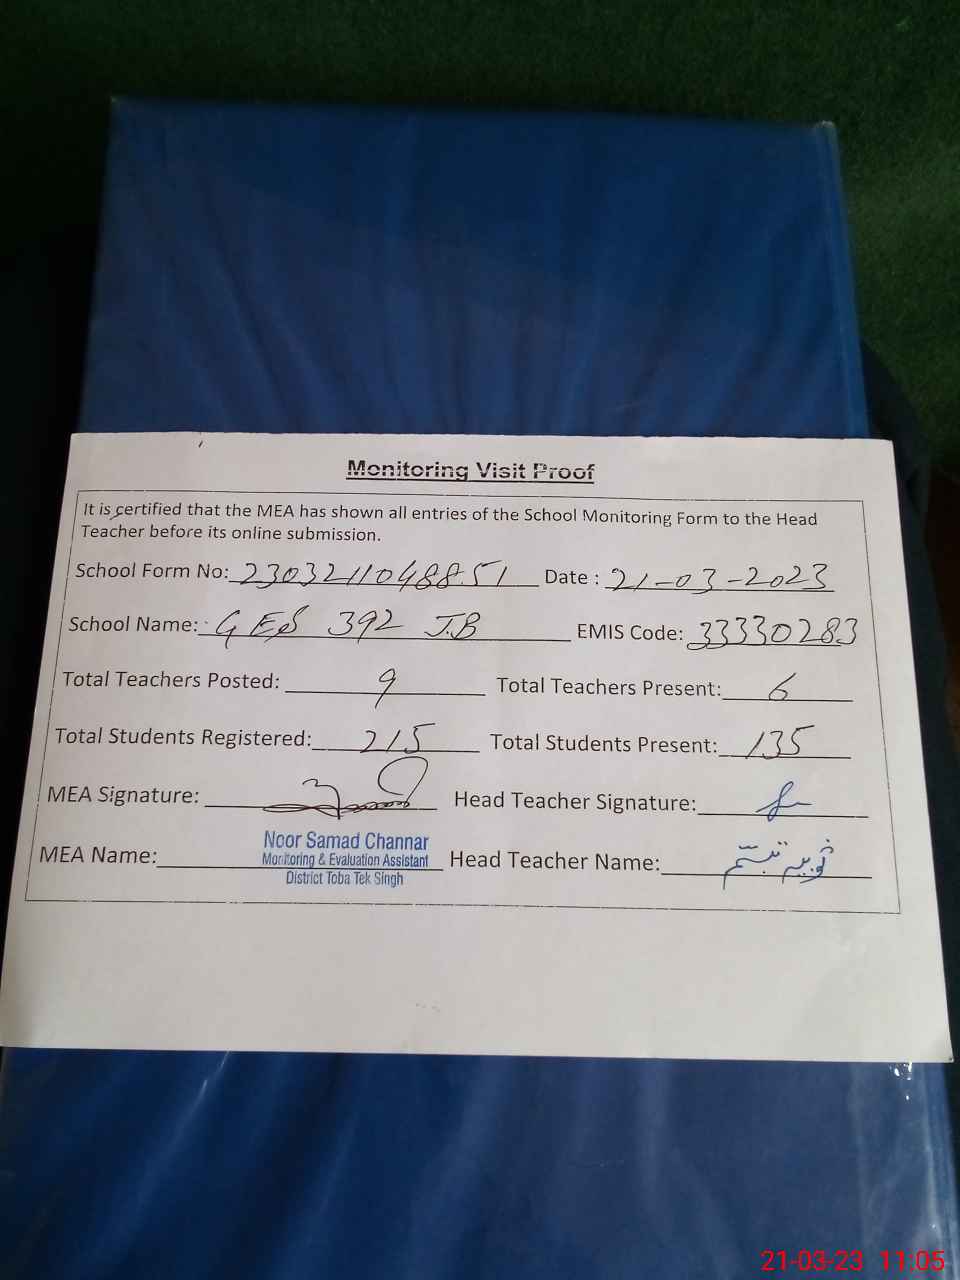 Monitoring Visit Proof
It is certified that the MEA has shown all entries of the School Monitoring Form to the Head
Teacher before its online submission.
School Form No: 23032110488851 Date : 21-03-2023
School Name: GES 392 J.B EMIS Code: 33330283
Total Teachers Posted: 9 Total Teachers Present: 6
Total Students Registered: 215 Total Students Present: 135
MEA Signature: Head Teacher Signature:
MEA Name: Noor Samad Channar
Monitoring & Evaluation Assistant
District Toba Tek Singh
Head Teacher Name: ثوبیہ تبسم
21-03-23 11:05